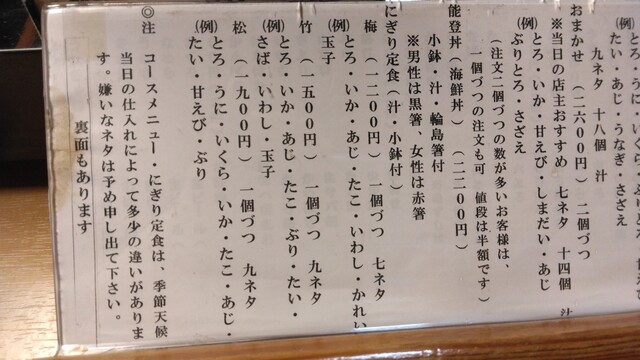 (例)とろ・うに・いくら・
たい・あじ・うなぎ・さざえ
九ネタ 十八個 汁
おまかせ (二六〇〇円) 二個づつ
※当日の店主おすすめ 七ネタ 十四個 汁
(例)とろ・いか・甘えび・しまだい・あじ
ぶりとろ・さざえ
(注文二個づつの数が多いお客様は、
一個づつの注文も可 値段は半額です)
能登丼(海鮮丼) (二二〇〇円)
小鉢・汁・輪島箸付
※男性は黒箸、女性は赤箸
にぎり定食(汁・小鉢付)
梅 (一二〇〇円) 一個づつ 七ネタ
(例)とろ・いか・あじ・たこ・いわし・かれい
玉子
竹 (一五〇〇円) 一個づつ 九ネタ
(例)とろ・いか・あじ・たこ・ぶり・たい・
さば・いわし・玉子
松 (一九〇〇円) 一個づつ 九ネタ
(例)とろ・うに・いくら・いか・たこ・あじ・
たい・甘えび・ぶり
◎注 コースメニュー・にぎり定食は、季節天候
当日の仕入れによって多少の違いがありま
す。嫌いなネタは予め申し出て下さい。
裏面もあります